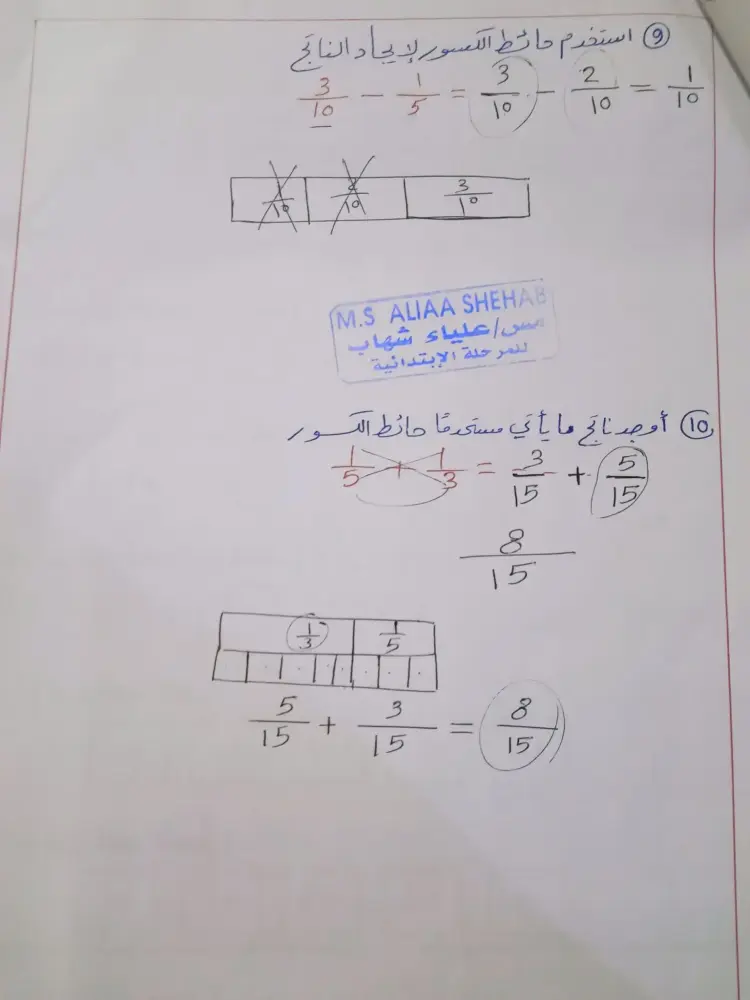 ٩ استخدم حائط الكسور لإيجاد الناتج
3/10 - 1/5 = 3/10 - 2/10 = 1/10
1/10 2/10 3/10
M.S ALIAA SHEHAB
مس/علياء شهاب
للمرحلة الإبتدائية
١٠ أوجد ناتج ما يأتي مستخدمًا حائط الكسور
1/5 + 1/3 = 3/15 + 5/15
8/15
1/3 1/5
5/15 + 3/15 = 8/15